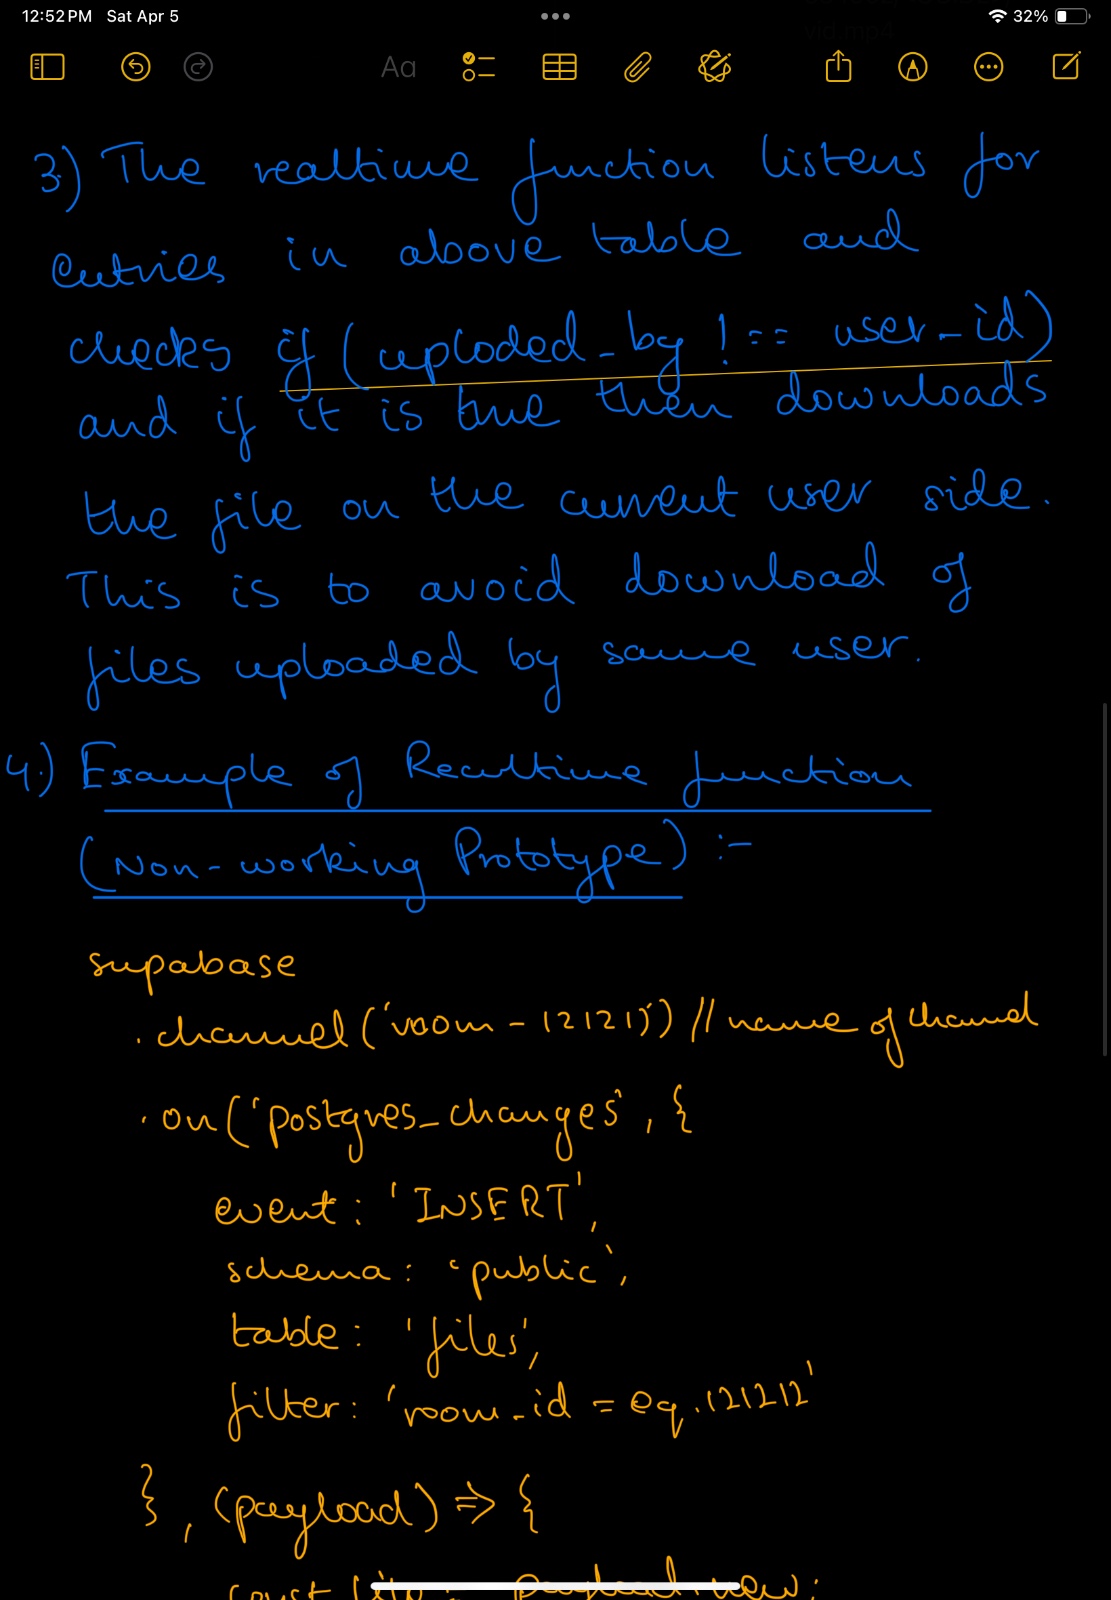 12:52 PM Sat Apr 5
32%
vid.mp4
Aa
3) The realtime function listens for
entries in above table and
checks if (uploded_by !== user_id)
and if it is true then downloads
the file on the current user side.
This is to avoid download of
files uploaded by same user.
4.) Example of Realtime function
(Non-working Prototype) :-
supabase
.channel('room-12121') // name of channel
.on('postgres_changes', {
event: 'INSERT',
schema: 'public',
table: 'files',
filter: 'room_id = eq.121212'
}, (payload) => {
const payload.new;